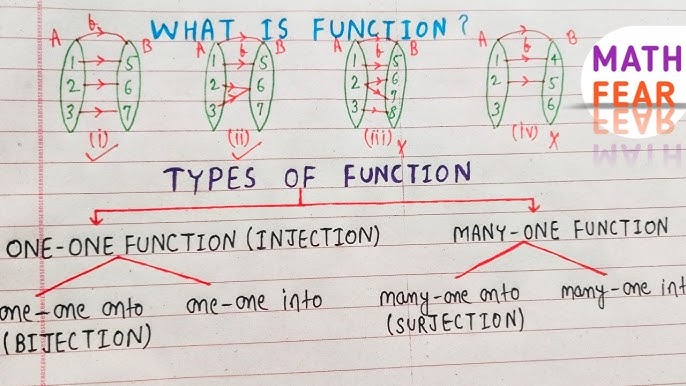 WHAT IS FUNCTION?
A B A f B A f B A f B
1 5 1 5 1 5 1 4
2 6 2 6 2 6 2 5
3 7 3 7 3 7 8 3 6
(i) (ii) (iii) (iv)
MATH
FEAR
TYPES OF FUNCTION
ONE-ONE FUNCTION (INJECTION) MANY-ONE FUNCTION
one-one onto one-one into many-one onto many-one int
(BIJECTION) (SURJECTION)